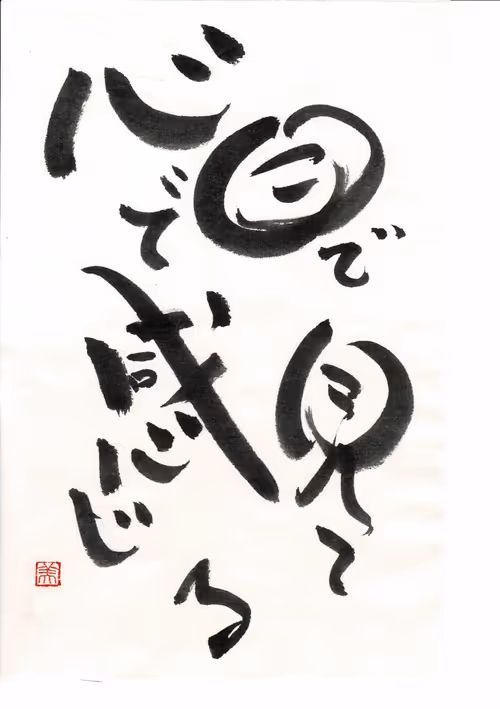 目で見て
心で感じる
美